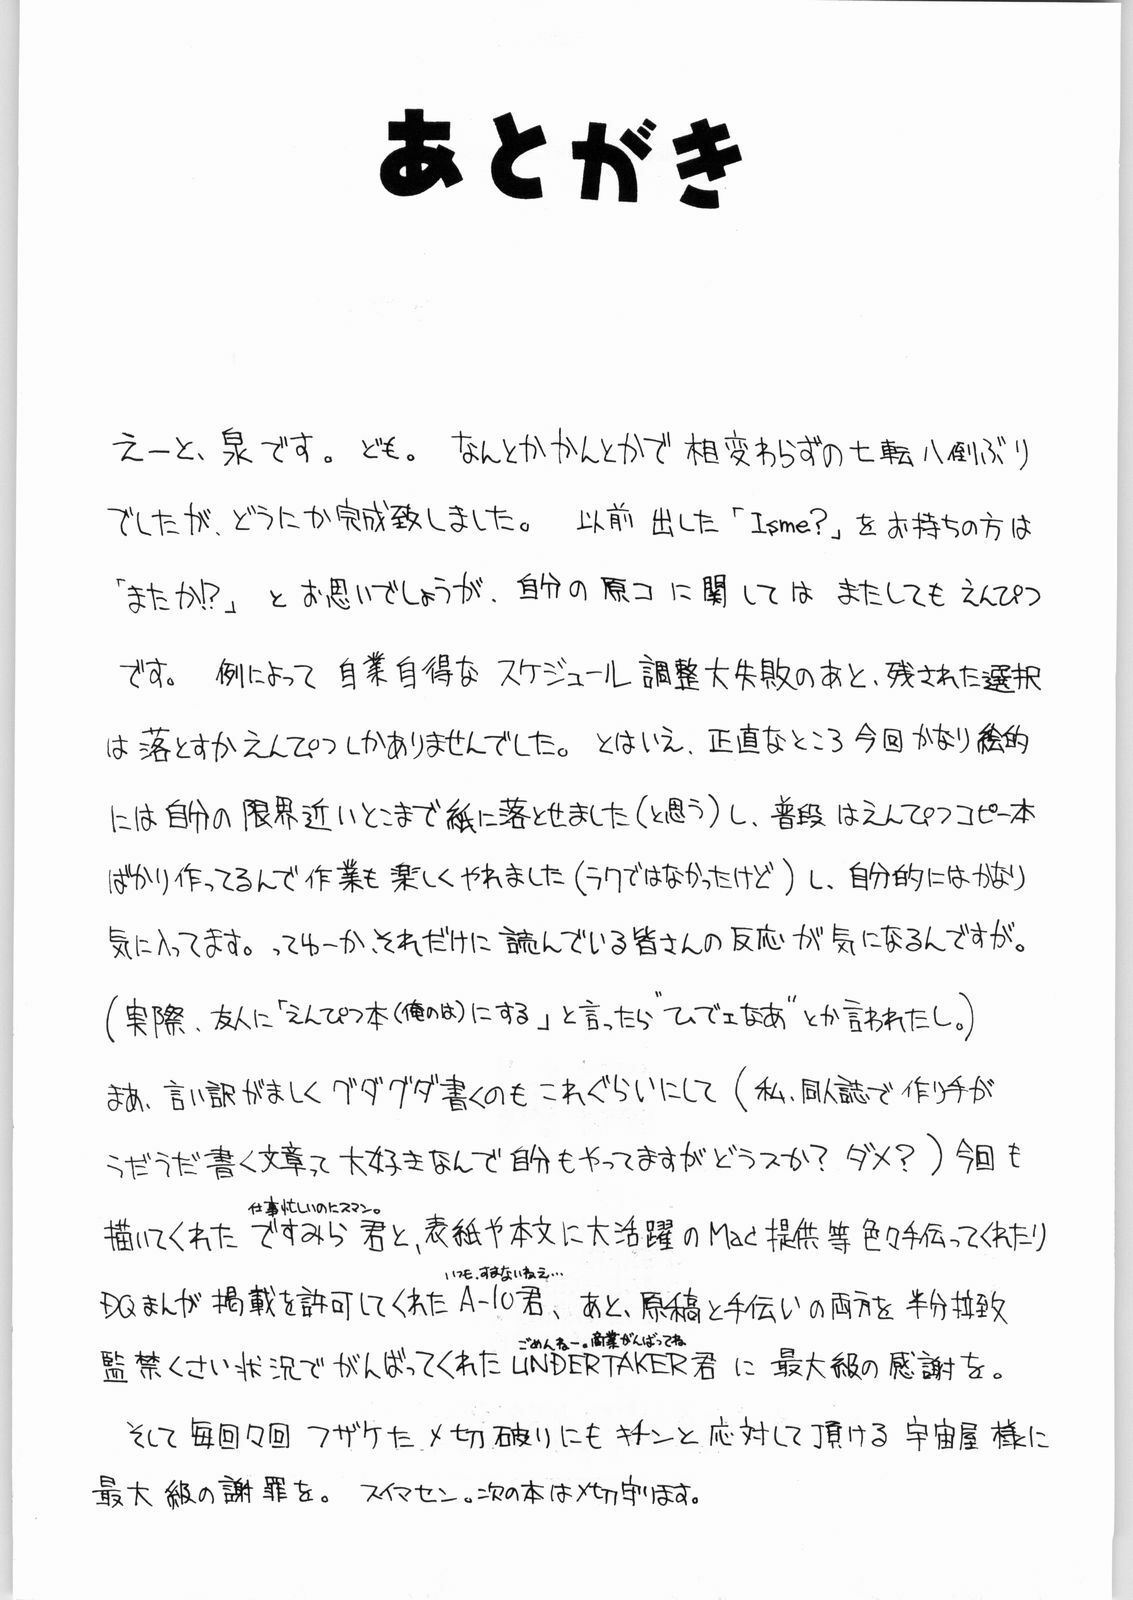 あとがき
えーと、泉です。ども。なんとかかんとかで相変わらずの七転八倒ぶり
でしたが、どうにか完成致しました。 以前出した「Isme?」をお持ちの方は
「またか!?」とお思いでしょうが、自分の原コに関してはまたしてもえんぴつ
です。 例によって自業自得なスケジュール調整大失敗のあと、残された選択
は落とすかえんぴつしかありませんでした。とはいえ、正直なところ今回かなり絵的
には自分の限界近いとこまで紙に落とせました(と思う)し、普段はえんぴつコピー本
ばかり作ってるんで作業も楽しくやれました(ラクではなかったけど)し、自分的にはかなり
気に入ってます。ってゆーか、それだけに読んでいる皆さんの反応が気になるんですが。
(実際、友人に「えんぴつ本(俺のは)にする」と言ったら"ひでェなあ"とか言われたし。)
まあ、言い訳がましくグダグダ書くのもこれぐらいにして(私、同人誌で作り手が
うだうだ書く文章って大好きなんで自分もやってますがどうスか?ダメ?)今回も
仕事忙しいのにスマン。
描いてくれたですみら君と、表紙や本文に大活躍のMac提供等色々手伝ってくれたり
いつも、すまないねえ…
DQまんが掲載を許可してくれたA-10君、あと、原稿と手伝いの両方を半分拉致
ごめんねー。商業がんばってね
監禁くさい状況でがんばってくれたUNDERTAKER君に最大級の感謝を。
そして毎回々回フザケた〆切破りにもキチンと応対して頂ける宇宙屋様に
最大級の謝罪を。 スイマセン。次の本は〆切守ります。